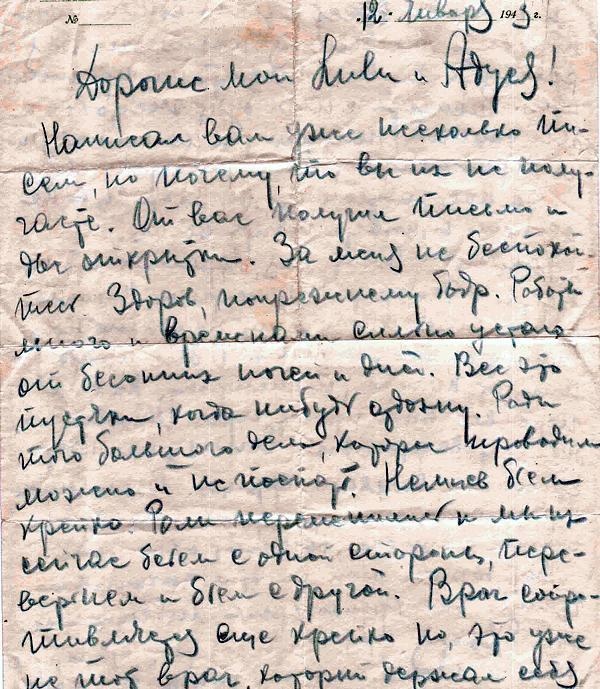 №
12 Января 1943 г.
Дорогие мои Киви и Адуся!
Написал вам уже несколько пи-
сем, но почему, то вы их не полу-
чаете. От вас получил письмо и
две открытки. За меня не беспокой-
тесь. Здоров, попрежнему бодр. Работы
много и временами сильно устаю
от бесонных ночей и дней. Все это
пустяки, когда нибудь отдохну. Ради
того большого дела, которое проводим
можно и не поспать. Немцев бьем
крепко. Роли переменились и мы их
сейчас бьем с одной стороны, пере-
вернем и бьем с другой. Враг сопро-
тивляется еще крепко но, это уже
не тот враг, который держал себя